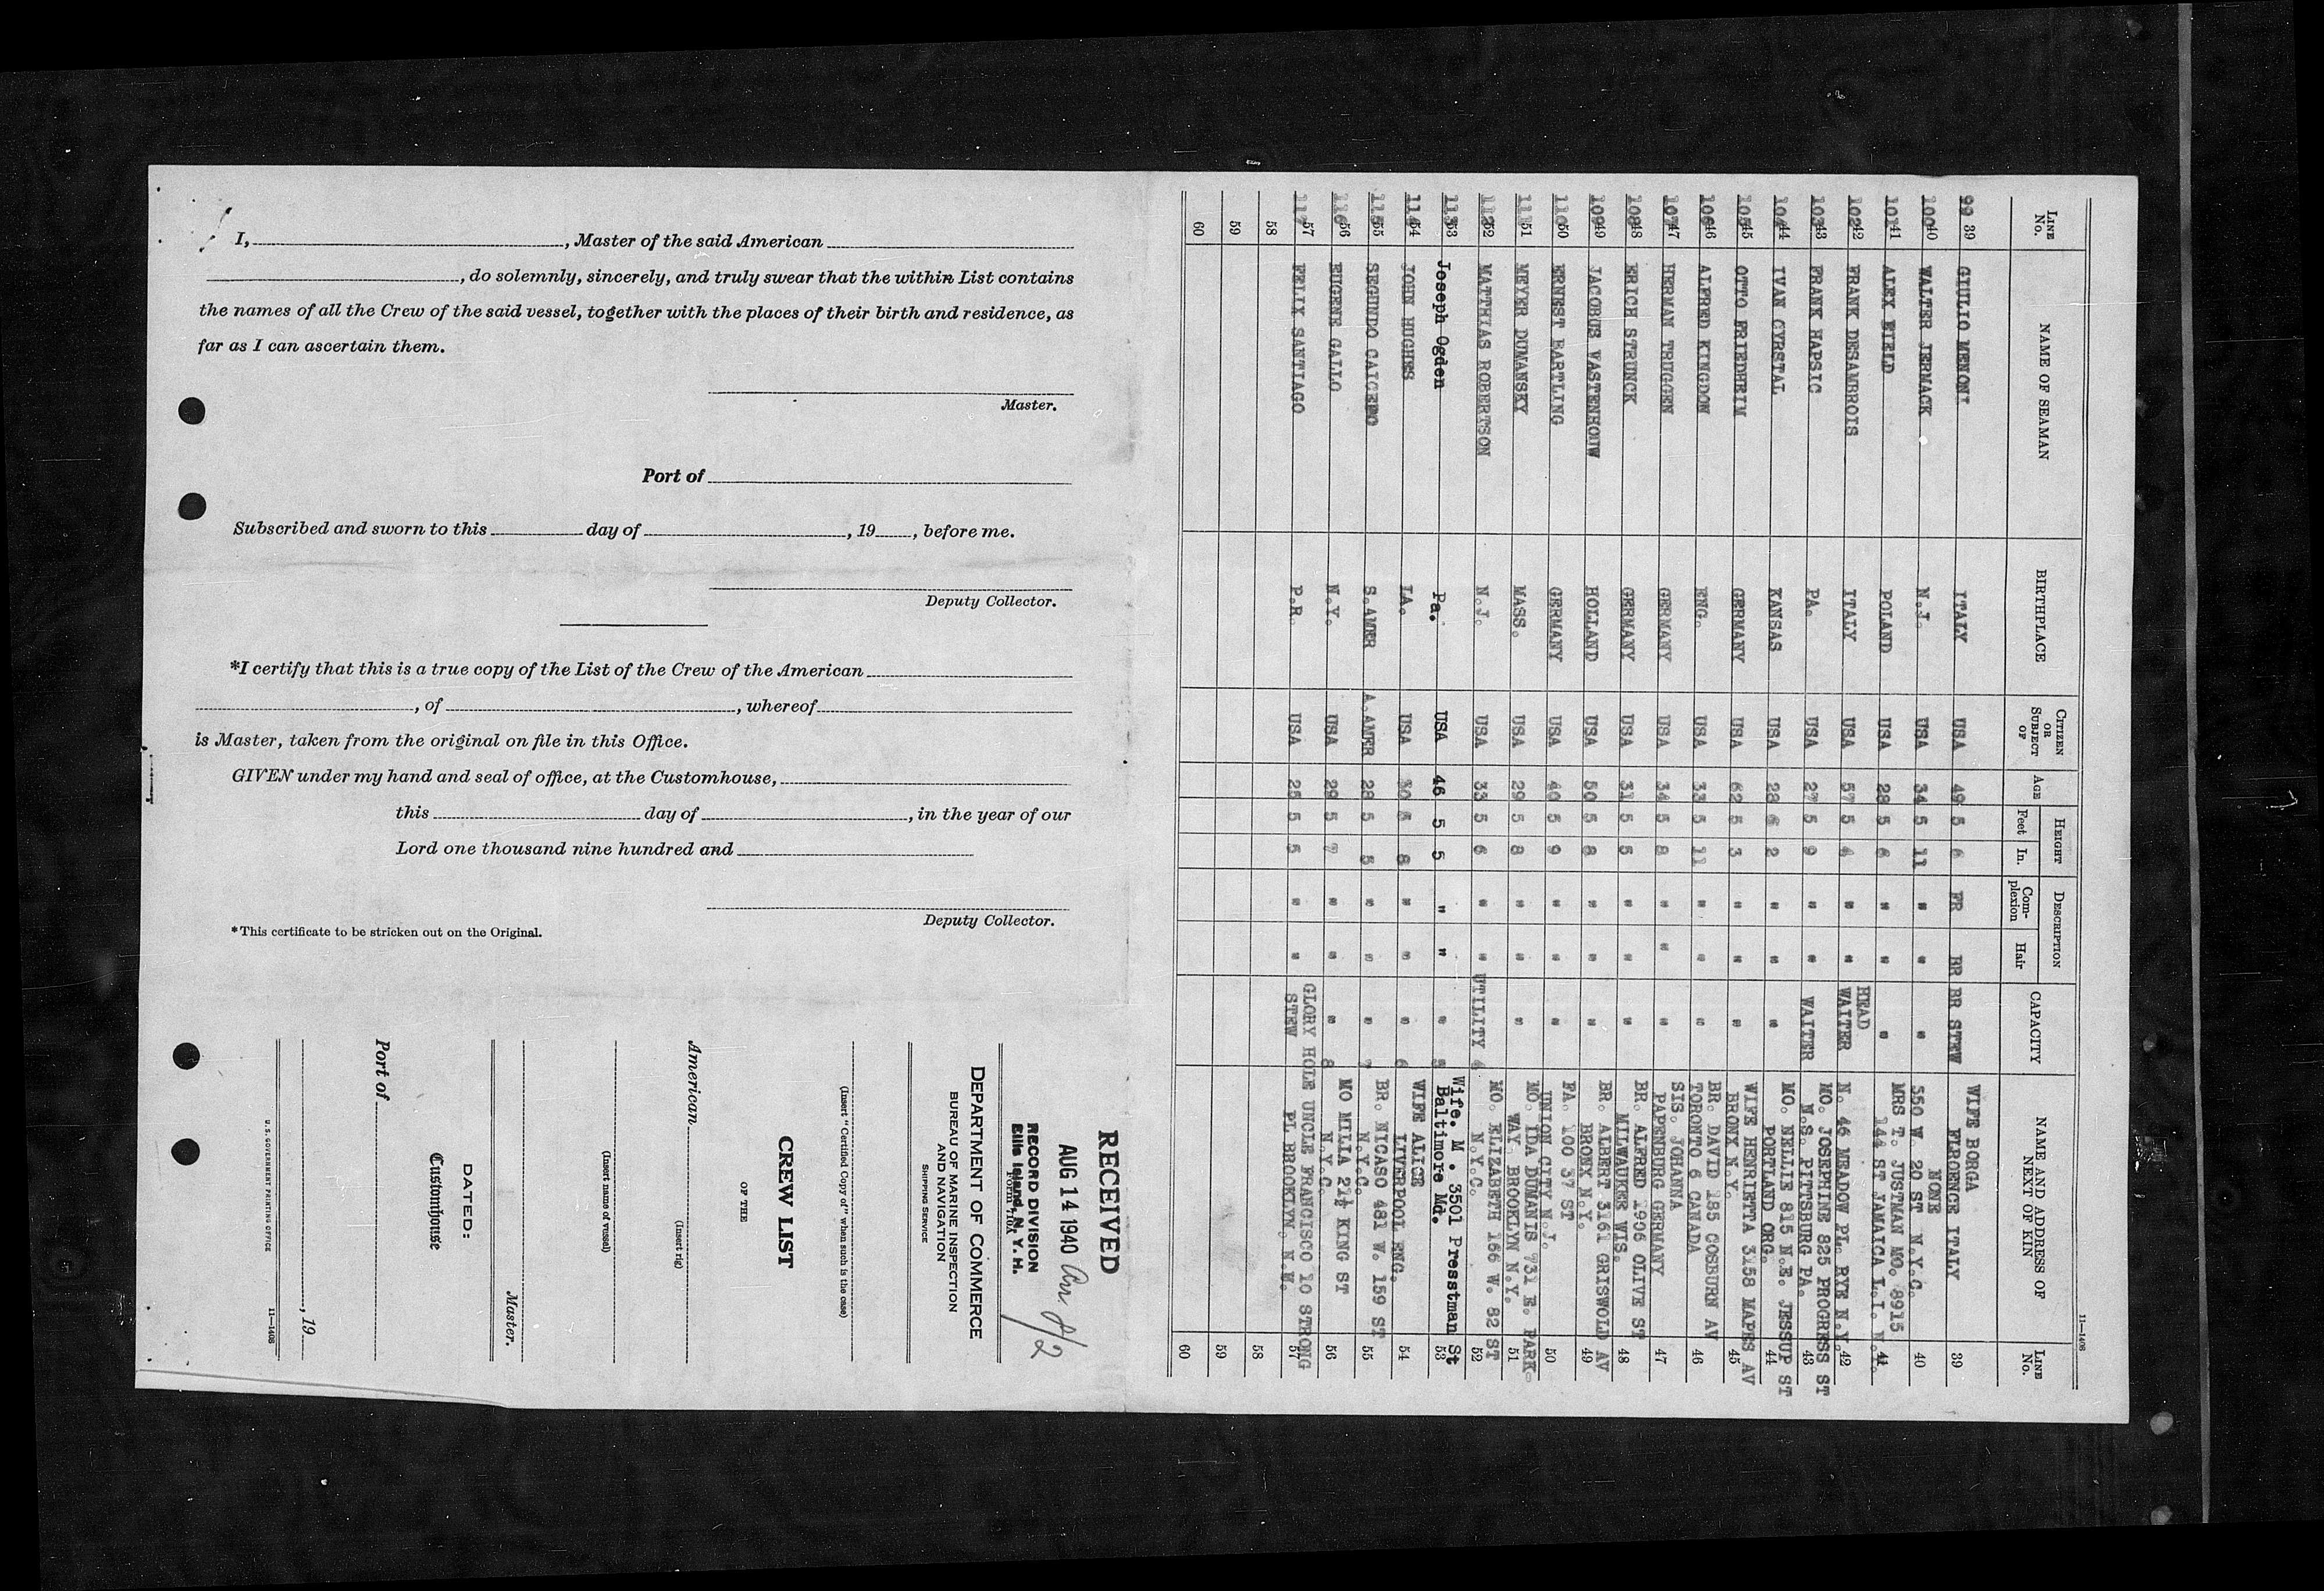 I, , Master of the said American
, do solemnly, sincerely, and truly swear that the within List contains
the names of all the Crew of the said vessel, together with the places of their birth and residence, as
far as I can ascertain them.
Master.
Port of
Subscribed and sworn to this day of , 19 , before me.
Deputy Collector.
*I certify that this is a true copy of the List of the Crew of the American
, of , whereof
is Master, taken from the original on file in this Office.
GIVEN under my hand and seal of office, at the Customhouse,
this day of , in the year of our
Lord one thousand nine hundred and
Deputy Collector.
*This certificate to be stricken out on the Original.
RECEIVED
AUG 14 1940
8/2
RECORD DIVISION
Ellis Island, N. Y. H.
DEPARTMENT OF COMMERCE
BUREAU OF MARINE INSPECTION
AND NAVIGATION
SHIPPING SERVICE
(Insert "Certified Copy of" when such is the case)
CREW LIST
OF THE
American
(Insert rig)
(Insert name of vessel)
Master.
DATED:
Customhouse
Port of
, 19
U.S. GOVERNMENT PRINTING OFFICE 11—1408
11—1408
LINE No. NAME OF SEAMAN BIRTHPLACE CITIZEN OR SUBJECT OF AGE HEIGHT Feet In. DESCRIPTION Com-plexion Hair CAPACITY NAME AND ADDRESS OF NEXT OF KIN LINE No.
99 39 GIULIO MENONI ITALY USA 49 5 6 FR BR BR STEW WIFE BORGA FLROENCE ITALY 39
100 40 WALTER JERMACK N.J. USA 34 5 11 " " " NONE 550 W. 20 ST N.Y.C. 40
101 41 ALEX EIELD POLAND USA 28 5 6 " " " MRS T. JUSTMAN MO. 8915 144 ST JAMAICA L.I. N.Y. 41
102 42 FRANK DESAMBROIS ITALY USA 57 5 4 " " HEAD WAITER N. 46 MEADOW PL. RYE N.Y. 42
103 43 FRANK HAPSIC PA. USA 27 5 9 " " WAITER MO. JOSEPHINE 825 PROGRESS ST N.S. PITTSBURG PA. 43
104 44 IVAN CYRSTAL KANSAS USA 28 6 2 " " " MO. NELLE 815 N.E. JESSUP ST PORTLAND ORG. 44
105 45 OTTO FRIEDHEIM GERMANY USA 62 5 3 " " " WIFE HENRIETTA 3158 MAPES AV BRONX N.Y. 45
106 46 ALFRED KINGDON ENG. USA 33 5 11 " " " BR. DAVID 185 COSBURN AV TORONTO 6 CANADA 46
107 47 HERMAN TRUGGEN GERMANY USA 34 5 8 " " " SIS. JOHANNA PAPENBURG GERMANY 47
108 48 ERICH STRUNCK GERMANY USA 31 5 5 " " " BR. ALFRED 1906 OLIVE ST MILWAUKEE WIS. 48
109 49 JACOBUS WASTENHOUW HOLLAND USA 50 5 8 " " " BR. ALBERT 3161 GRISWOLD AV BRONX N.Y. 49
110 50 ERNEST BARTLING GERMANY USA 40 5 9 " " " FA. 100 37 ST UNION CITY N.J. 50
111 51 MEYER DUMANSKY MASS. USA 29 5 8 " " " MO. IDA DUMANIS 731 E. PARK- WAY BROOKLYN N.Y. 51
112 52 MATTHIAS ROBERTSON N.J. USA 33 5 6 " " UTILITY 4 MO. ELIZABETH 166 W. 82 ST N.Y.C. 52
113 53 Joseph Ogden Pa. USA 46 5 5 " " " 5 Wife. M . 3501 Presstman St Baltimore Md. 53
114 54 JOHN HUGHES LA. USA 30 5 8 " " " 6 WIFE ALICE LIVERPOOL ENG. 54
115 55 SEGUNDO CAICEDO S.AMER A.AMER 28 5 5 " " " 7 BR. NICASO 481 W. 159 ST N.Y.C. 55
116 56 EUGENE GALLO N.Y. USA 29 5 7 " " " 8 MO MILIA 21½ KING ST N.Y.C. 56
117 57 FELIX SANTIAGO P.R. USA 25 5 5 " " GLORY HOLE STEW UNCLE FRANCISCO 10 STRONG PL BROOKLYN. N.W. 57
58 58
59 59
60 60